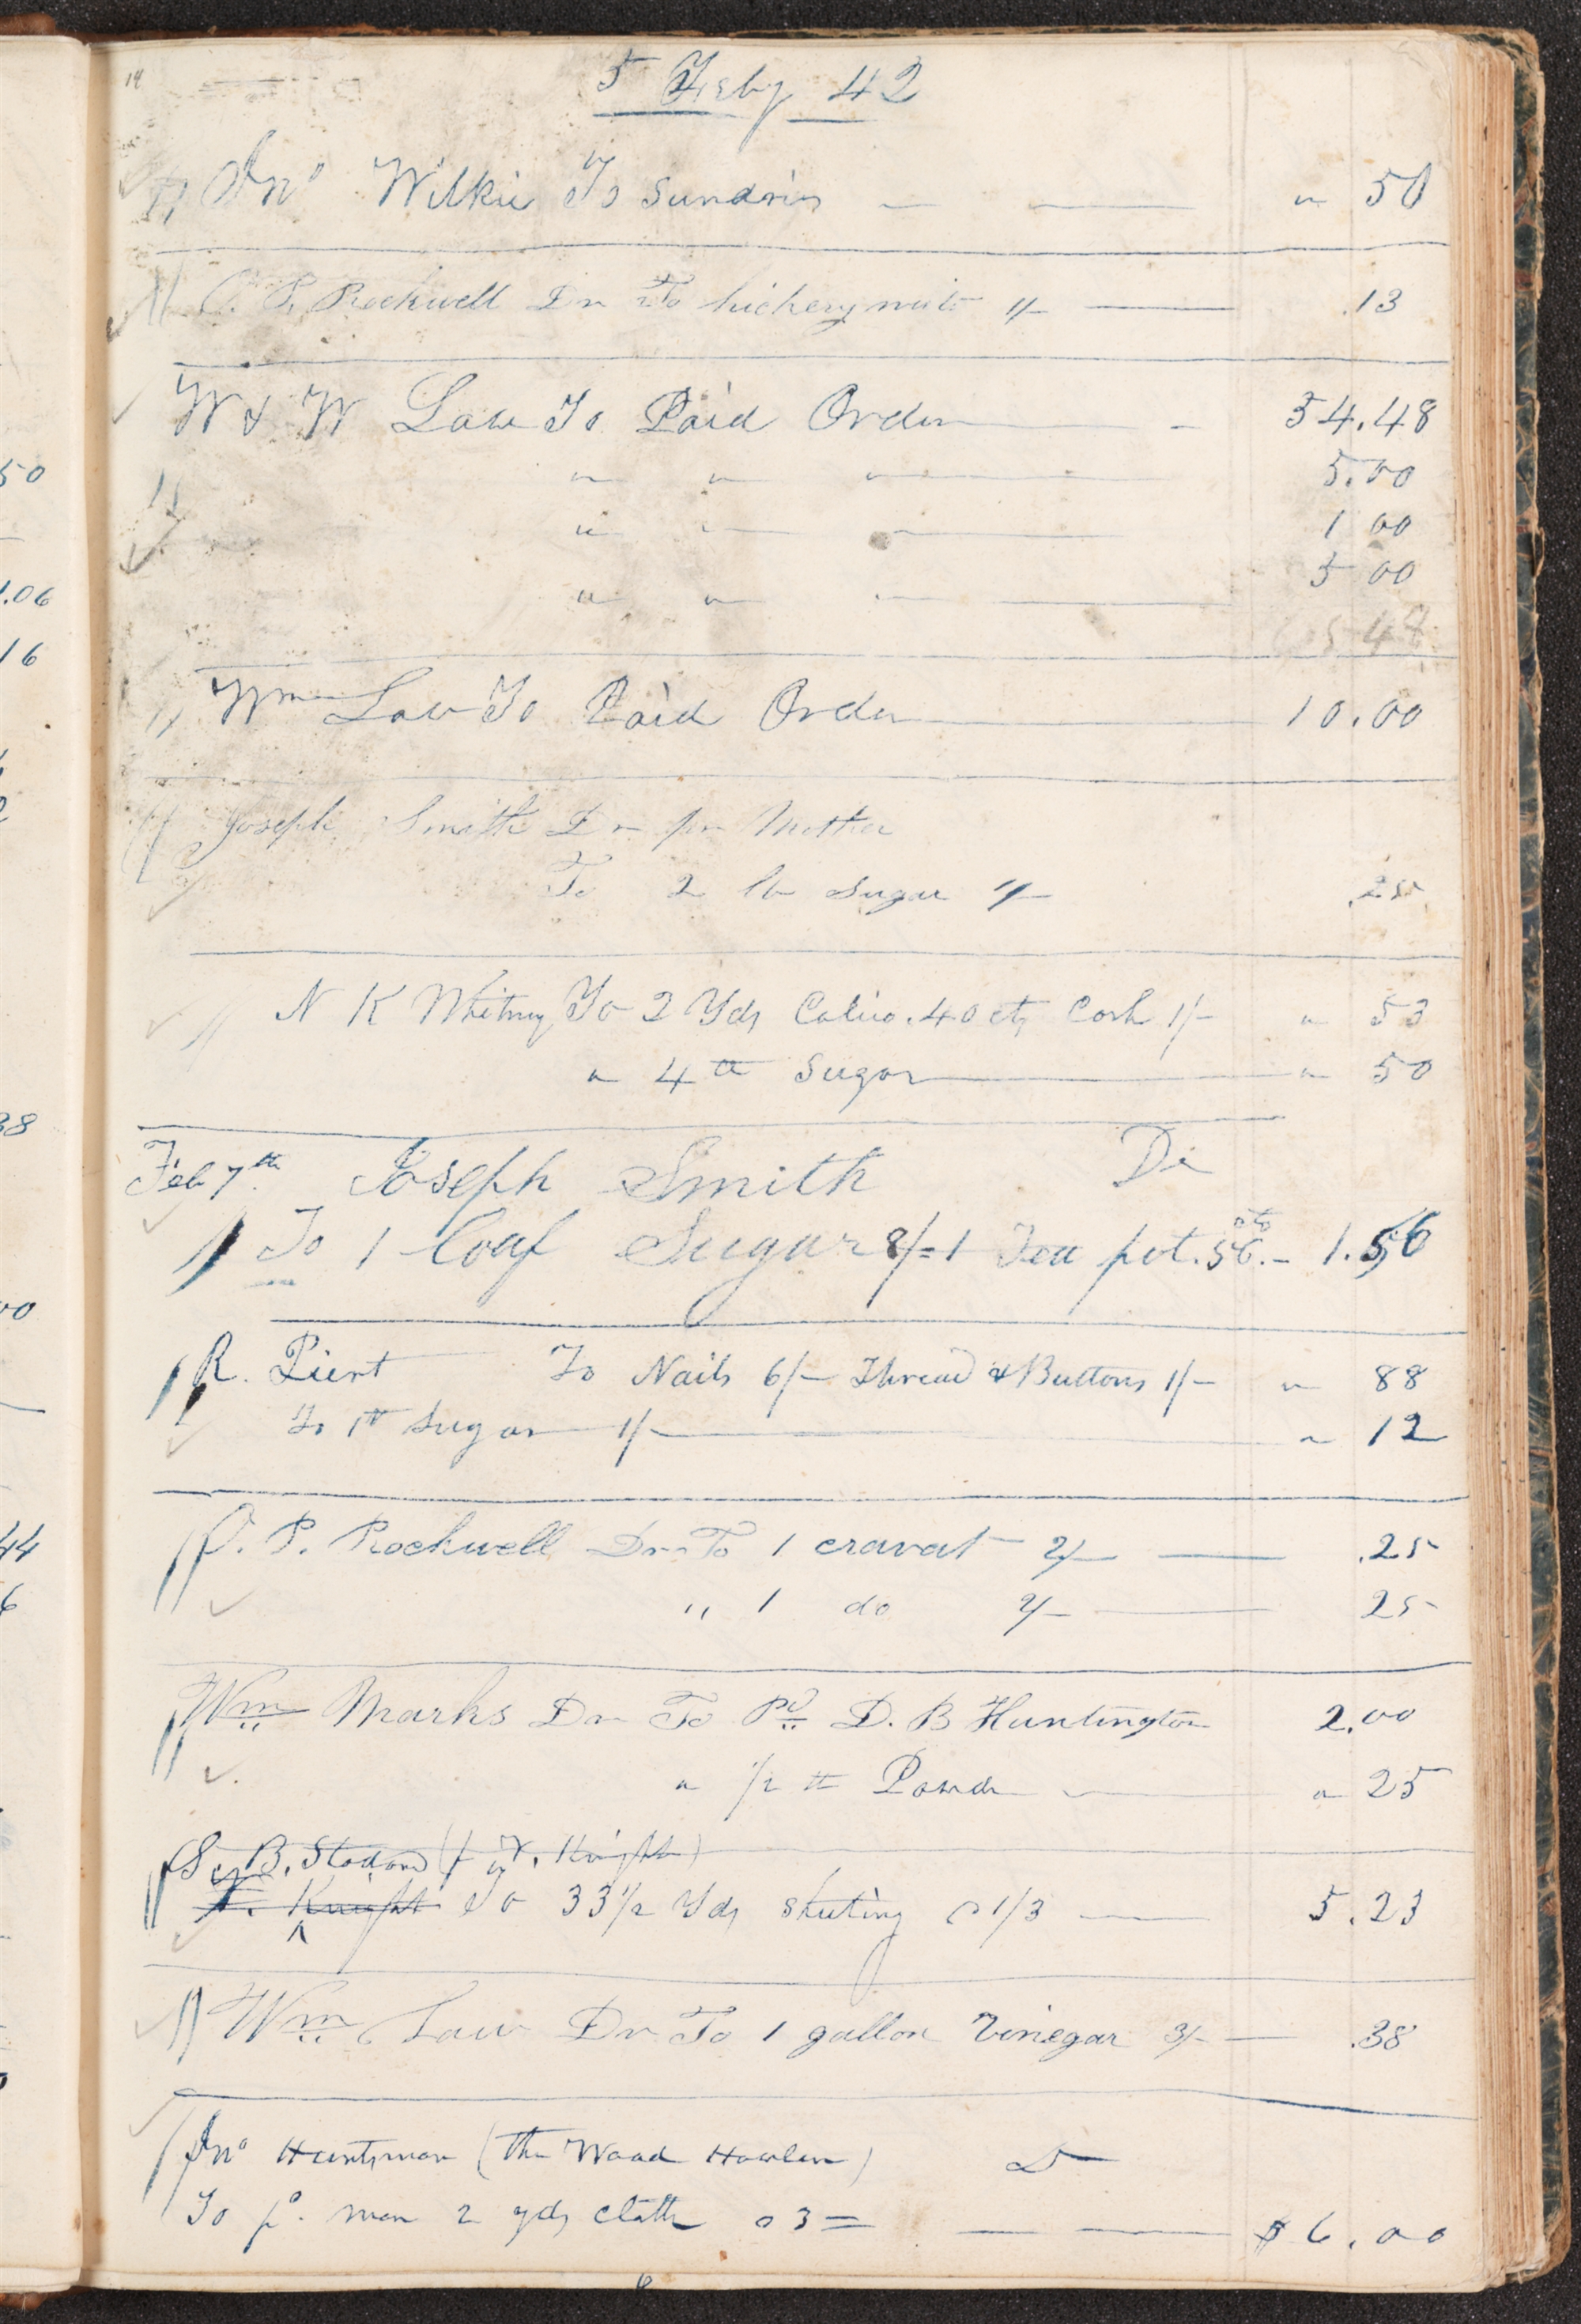 14
5 Feby 42
Jno Wilkie To Sundries — — " 50
O. P. Rockwell Dr To hickery nuts 1/- — .13
W & W Law To Paid Order — - 54.48
" " " — 5.00
" " " — 1 00
" " " — 5 00
65 48
Wm Law To Paid Order — 10.00
Joseph Smith Dr pr Mother
To 2 lb Sugar 1/- .25
N K Whitney To 2 Yds Calico .40 cts Cash 1/- " 53
" 4 lb Sugar — " 50
Feb 7th Joseph Smith Dr
To 1 loaf Sugar 8/= 1 Tea pot .56 cts. - 1.56
R. To Nails 6/- Thread & Buttons 1/- " 88
To 1 lb Sugar 1/- — " 12
O. P. Rockwell Dr To 1 cravat 2/- — .25
" 1 do 2/- — 25
Wm Marks Dr To Pd D. B Huntington 2.00
" 1/2 lb Powdr — " 25
S. B. Stodard (by V. Knight)
V. Knight To 33 1/2 Yds Sheeting @ 1/3 — 5.23
Wm Law Dr To 1 gallon Vinegar 3/- — .38
Jno Huntsman (the Wood Hawler) Dr
To pr. man 2 yds cloth @ 3= — — $6.00
50
1.06
16
38
00
44
6